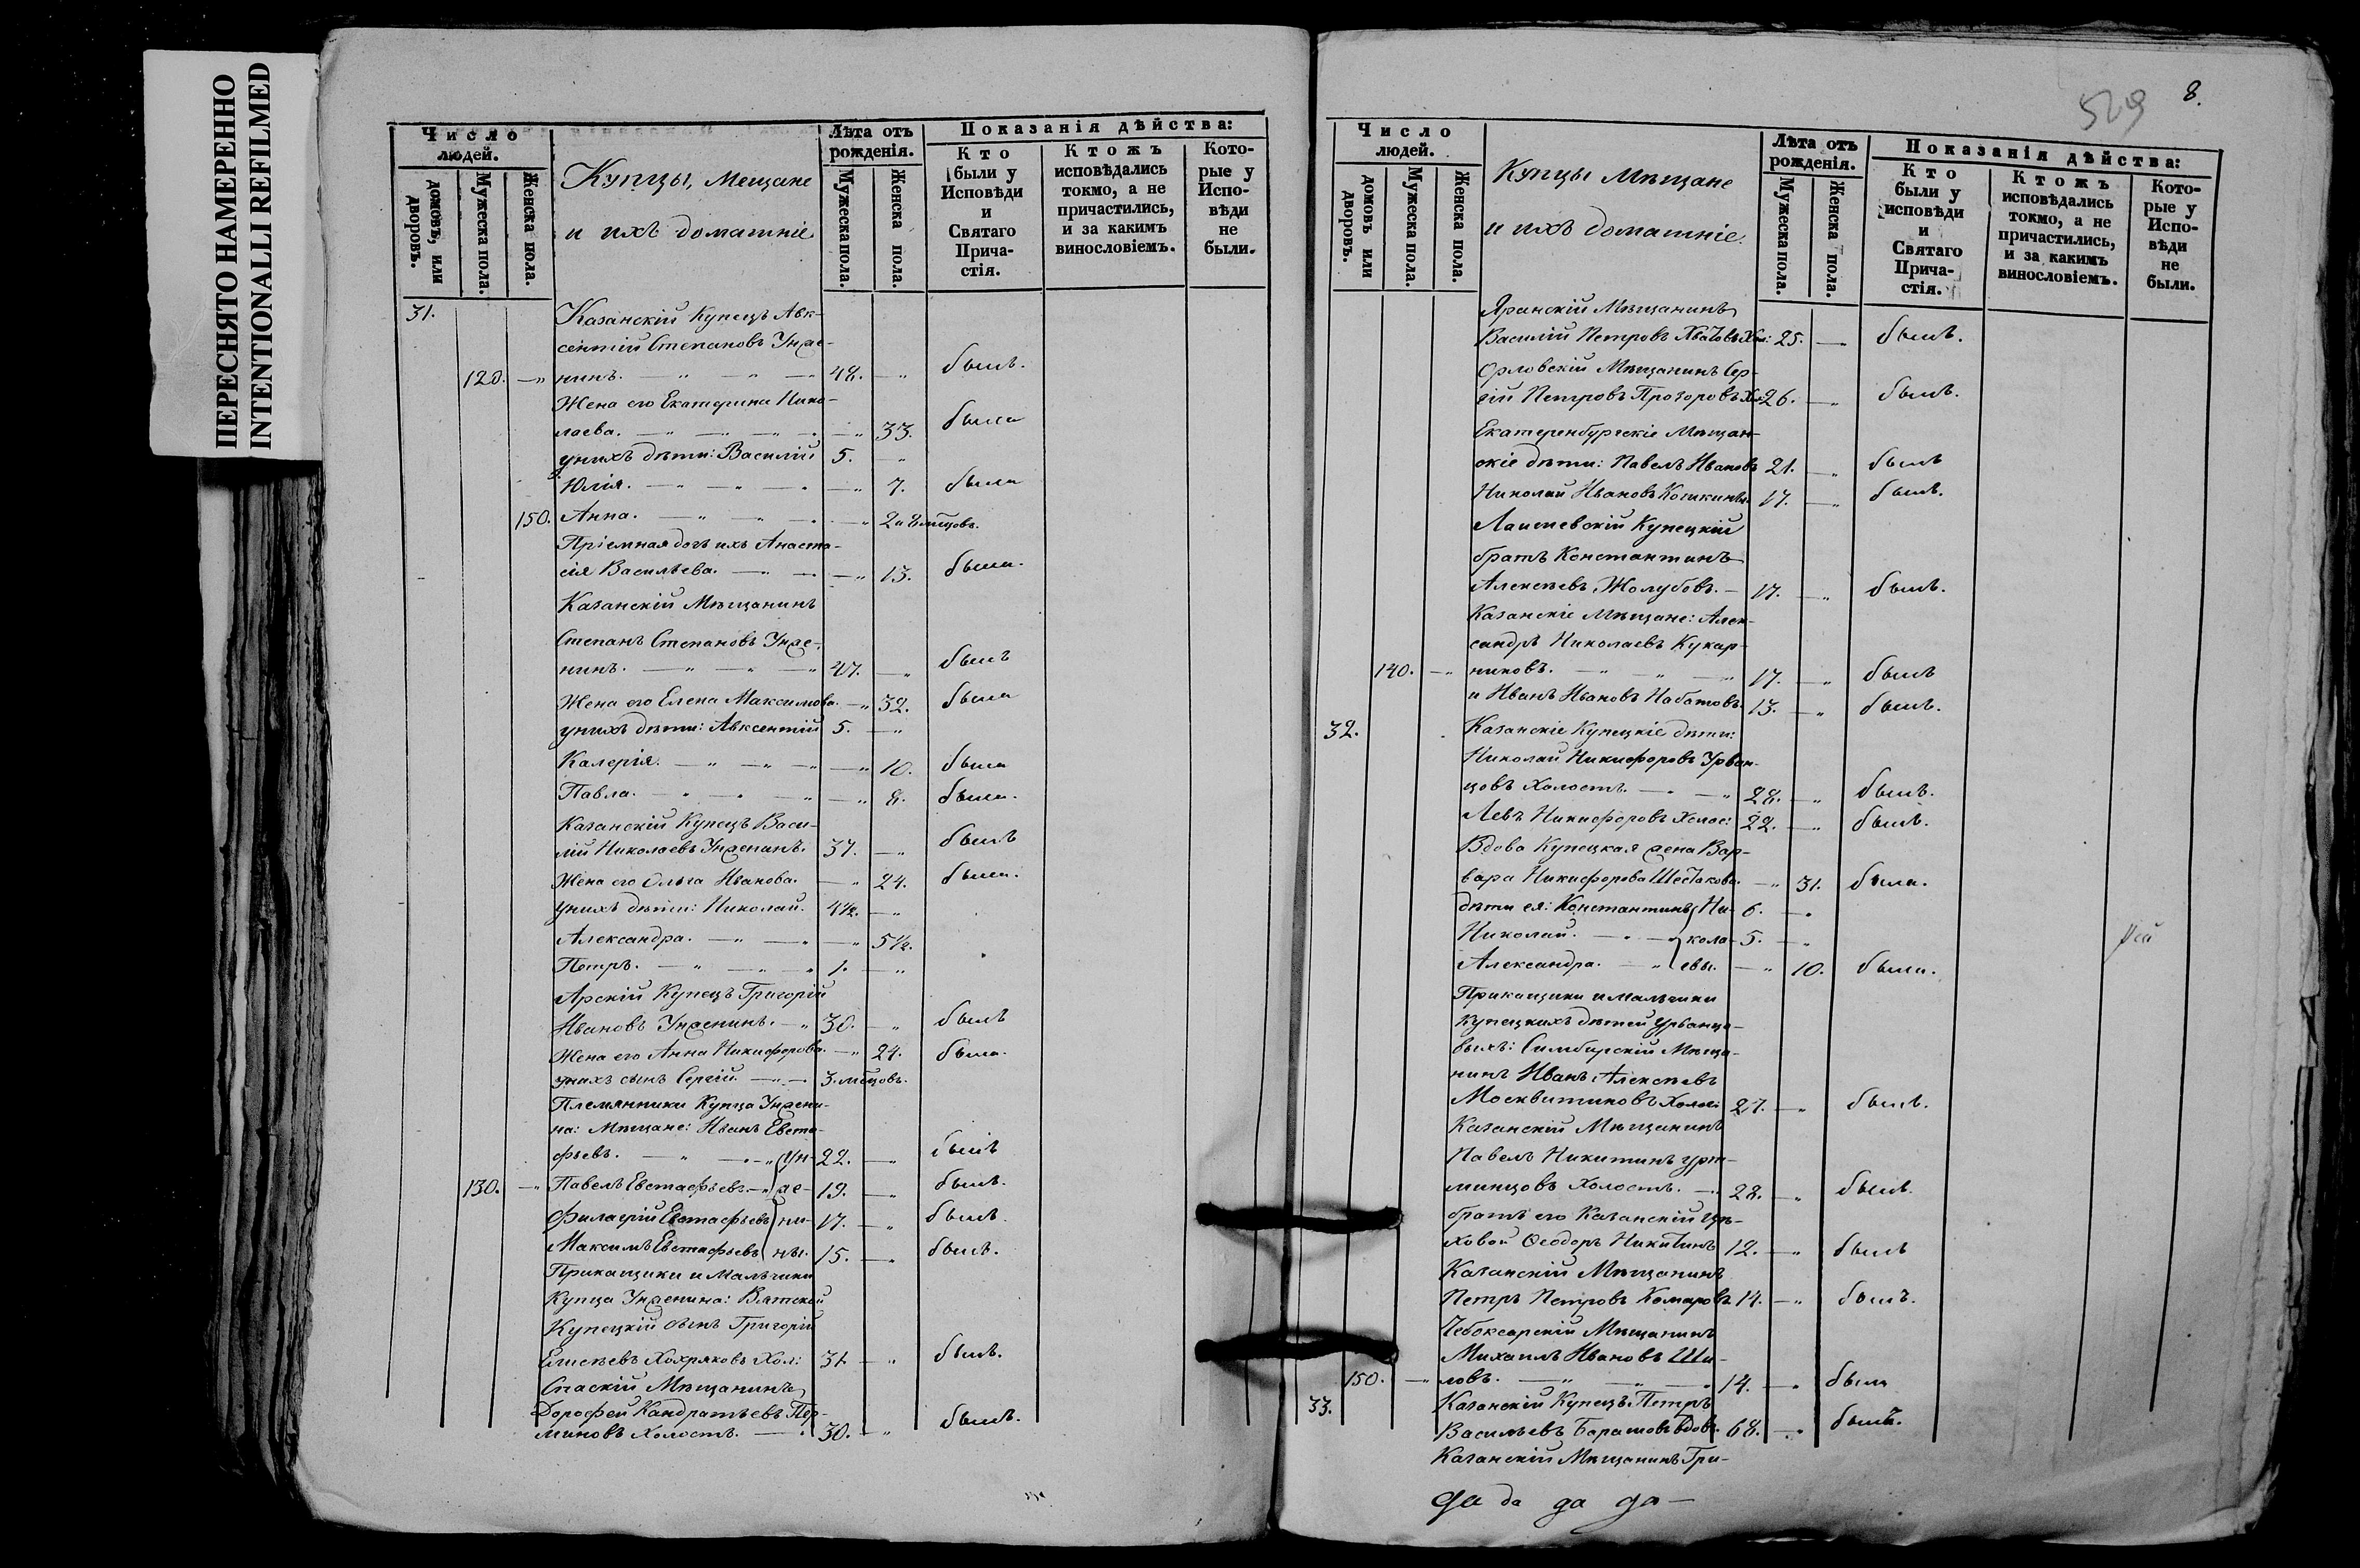 ПЕРЕСНЯТО НАМЕРЕННО
INTENTIONALLI REFILMED
Число людей. Лѣта отъ рожденія. Показанія дѣйства:
домовъ, или дворовъ. Мужеска пола. Женска пола. Купцы, Мещане и ихъ домашніе Мужеска пола. Женска пола. Кто были у Исповѣди и Святаго Прича-стія. Ктожъ исповѣдались токмо, а не причастились, и за какимъ винословіемъ. Кото-рые у Испо-вѣди не были.
31. Казанскій Купецъ Авк-
сентій Степановъ Унже-
120. —" нинъ. —" —" —" 48. —" былъ.
Жена его Екатерина Нико-
лаева. —" —" —" —" 33. была
у нихъ дѣти: Василій 5. —"
Юлія. —" —" —" —" 7. была
150. Анна. —" —" —" —" 2 и 8 мѣцовъ.
Пріемная дочь ихъ Анаста-
сія Васильева. —" —" —" 13. была.
Казанскій Мѣщанинъ
Степанъ Степановъ Унже-
нинъ. —" —" —" 47. —" былъ
Жена его Елена Максимова. —" 32. была
у нихъ дѣти: Авксентій 5. —"
Калерія. —" —" —" —" 10. была
Павла. —" —" —" —" 8. была.
Казанскій Купецъ Васи-
лій Николаевъ Унженинъ. 37. —" былъ
Жена его Ольга Иванова. —" 24. была.
у нихъ дѣти: Николай. 4½. —"
Александра. —" —" —" 5½.
Петръ. —" —" " 1. —"
Арскій Купецъ Григорій
Ивановъ Унженинъ. —" 30. —" былъ
Жена его Анна Никифорова. —" 24. была.
у нихъ сынъ Сергій. —" — 3. мѣцовъ.
Племянники Купца Унжени-
на: Мѣщане: Иванъ Евста-
фьевъ. —" —" Ун- 22. —" былъ
130. —" Павелъ Евстафьевъ —" же- 19. —" былъ.
Филагрій Евстафьевъ ни- 17. —" былъ.
Максимъ Евстафьевъ ны. 15. —" былъ.
Прикащики и Мальчики
Купца Унженина: Вятской
Купецкій сынъ Григорій
Елисѣевъ Хохряковъ Хол: 31 —" былъ.
Спаскій Мѣщанинъ
Дорофей Кандратьевъ Пер-
миновъ Холостъ. —" 30. —" былъ.
529 8.
Число людей. Лѣта отъ рожденія. Показанія дѣйства:
домовъ или дворовъ. Мужеска пола. Женска пола. Купцы Мѣщане и ихъ домашніе. Мужеска пола. Женска пола. Кто были у исповѣди и Святаго Прича-стія. Ктожъ исповѣдались токмо, а не причастились, и за какимъ винословіемъ. Кото-рые у Испо-вѣди не были.
Яранскій Мѣщанинъ
Василій Петровъ Хол: 25. —" былъ.
Орловскій Мѣщанинъ Сер-
гій Петровъ Прозоровъ Хол: 26. —" былъ.
Екатеренбургскіе Мѣщан-
скіе дѣти: Павелъ Ивановъ 21. —" былъ
Николай Ивановъ Кошкины. 17. —" былъ.
Лаишевскій Купецкій
братъ Константинъ
Алексѣевъ Жолубовъ. — 17. —" былъ.
Казанскіе Мѣщане: Алек-
сандръ Николаевъ Кукар-
140. —" никовъ. —" —" —" 17. —" былъ
и Иванъ Ивановъ Набатовъ. 13. —" былъ.
32. Казанскіе Купецкіе дѣти:
Николай Никифоровъ Урван-
цовъ Холостъ. —" —" 28. —" былъ.
Левъ Никифоровъ Холос: 22. —" былъ.
Вдова Купецкая жена Вар-
вара Никифорова Шестакова. —" 31. была.
дѣти ея: Константинъ Ни- 6. —"
Николай. —" —" кола- 5. —"
Александра. —" евы. —" 10. была.
Прикащики и мальчики
Купецкихъ дѣтей Урванцо-
выхъ: Симбирскій Мѣща-
нинъ Иванъ Алексѣевъ
Москвитиновъ Холос: 27. —" былъ.
Казанскій Мѣщанинъ
Павелъ Никитинъ Урт-
минцовъ Холостъ. —" 28. —" былъ.
братъ его Казанскій Цѣ-
ховой Ѳеодоръ Никитинъ 12. —" былъ
Казанскій Мѣщанинъ
Петръ Петровъ Комаровъ 14. —" былъ.
Чебоксарскій Мѣщанинъ
Михаилъ Ивановъ Ши-
150. —" ловъ. —" —" —" 14. —" былъ
33. Казанскій Купецъ Петръ
Васильевъ Баратовъ Вдовъ. 68. —" былъ.
Казанскій Мѣщанинъ Гри-
да да да да —